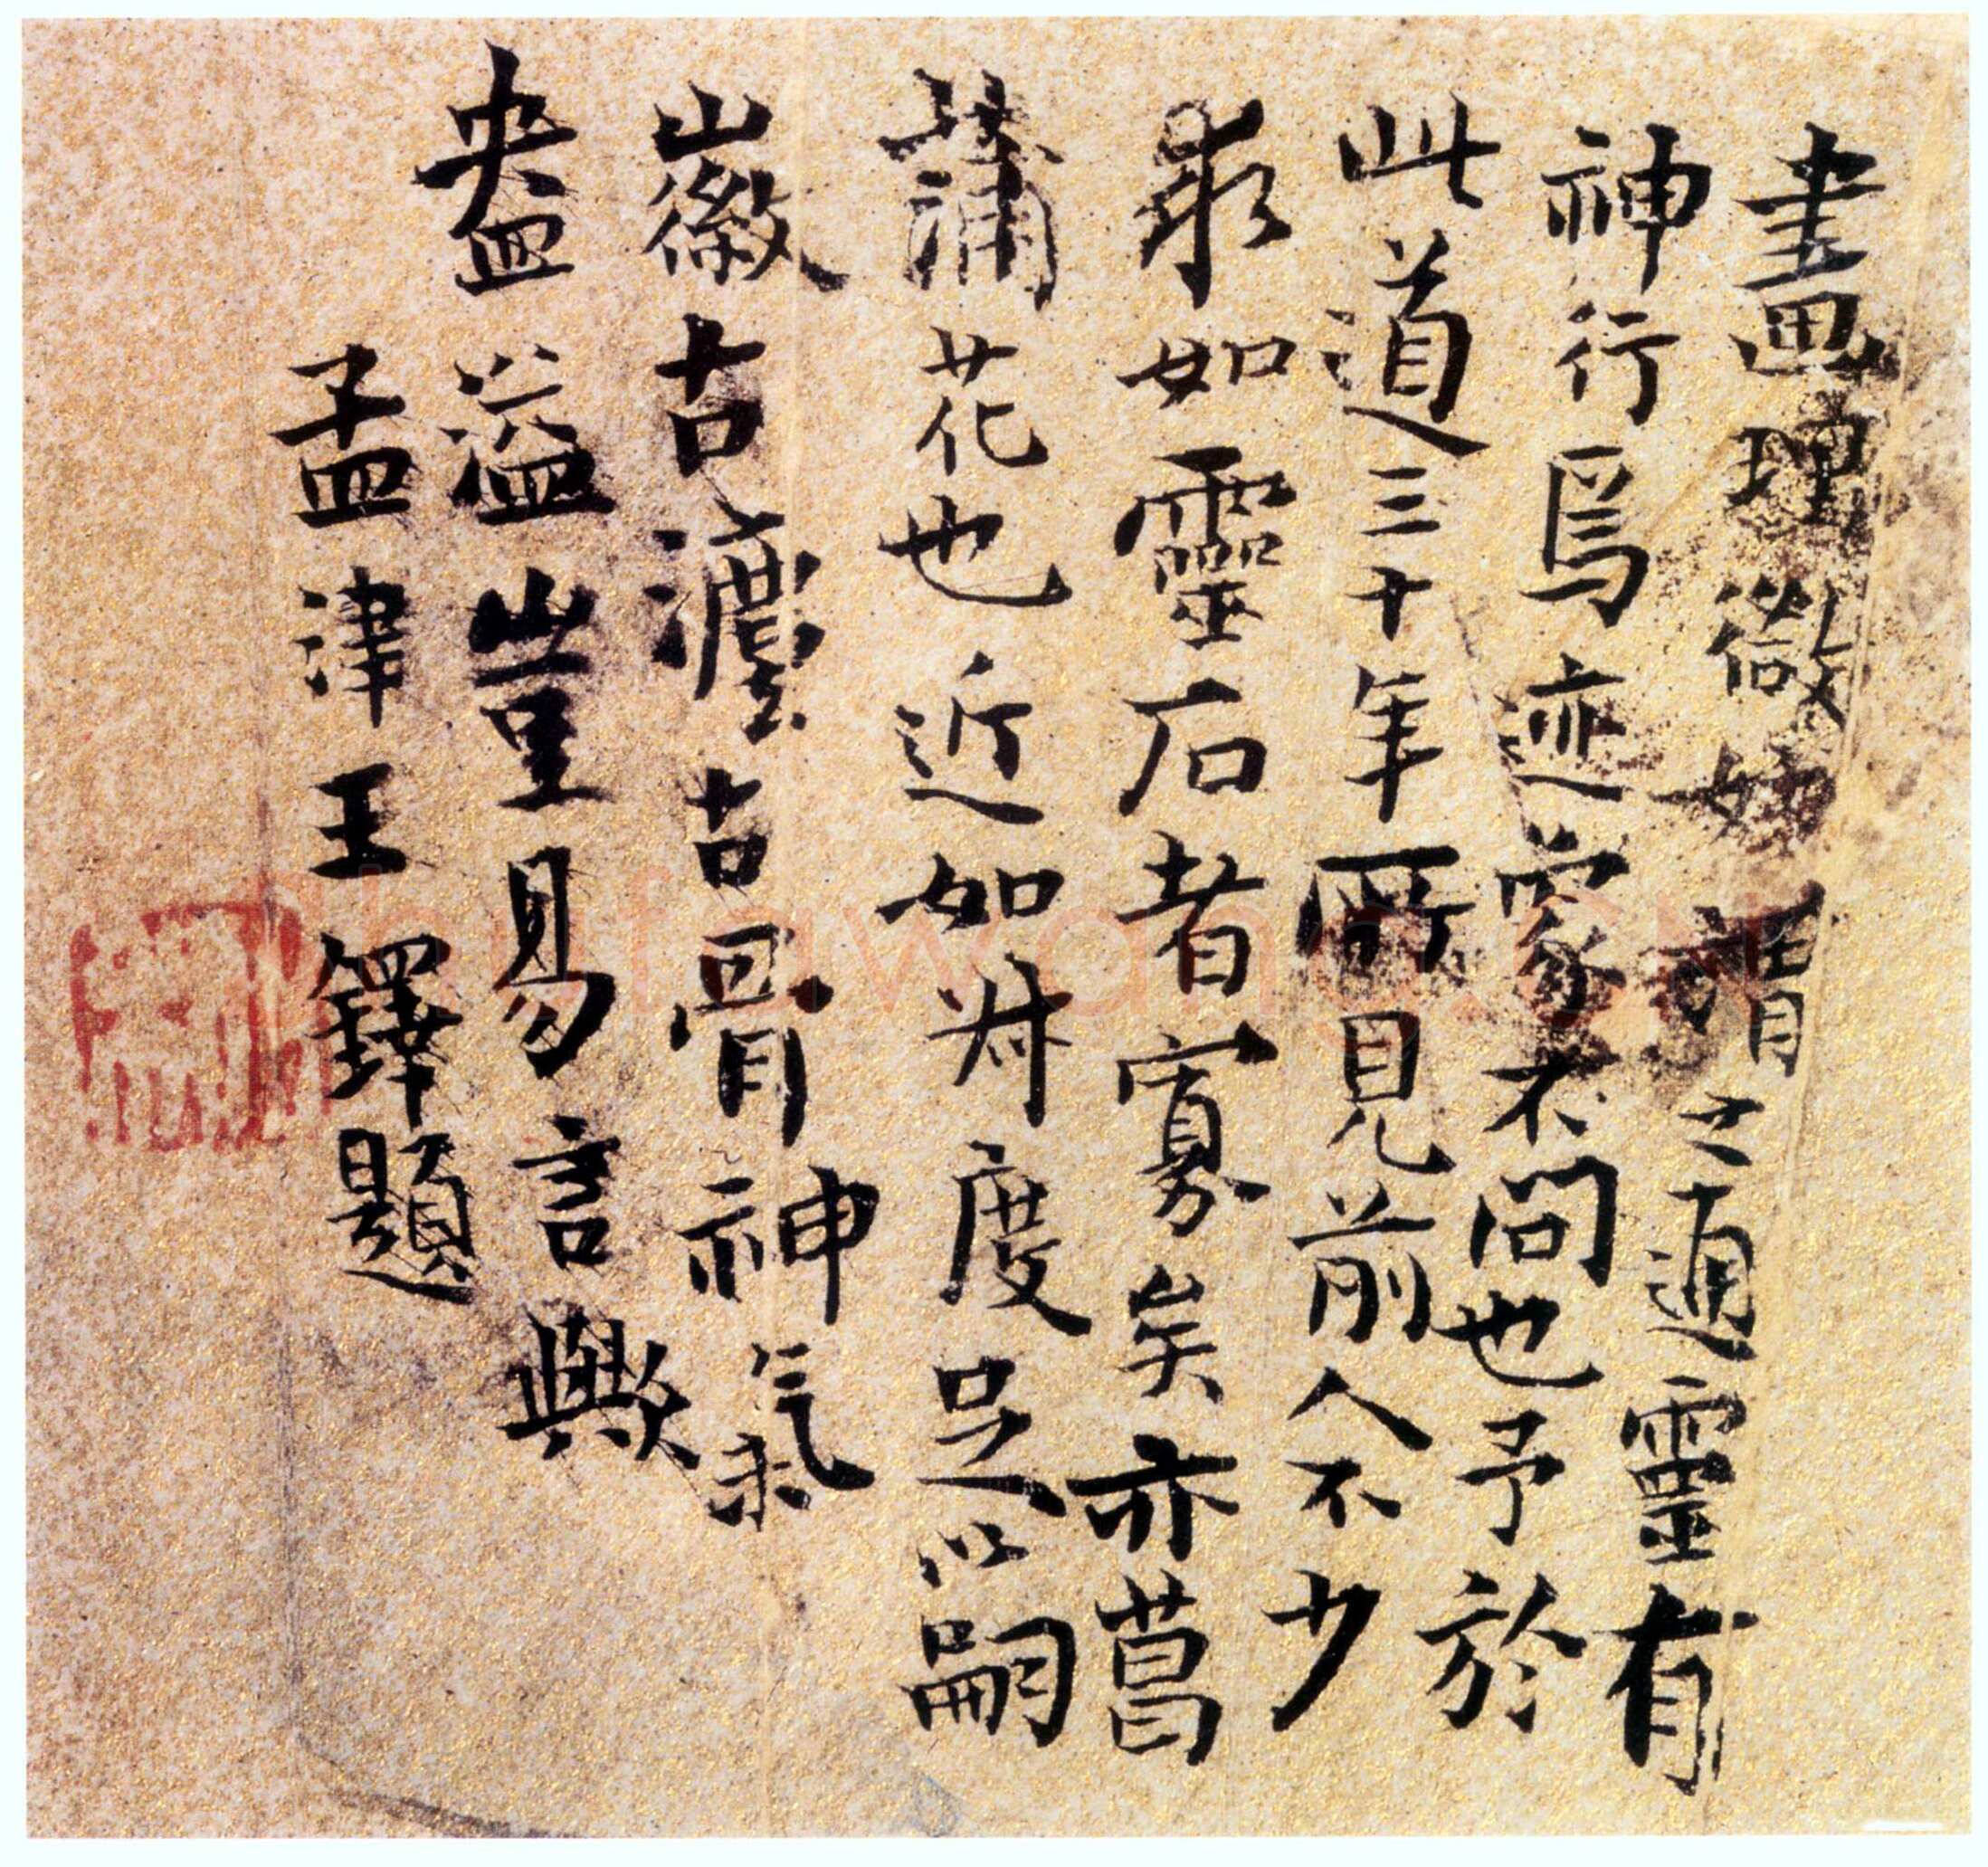 畫理微妙謂之通靈有
神行焉迹象不問也予於
此道三十年所見前人不少
求如靈石者寡矣亦菖
蒲花也近如舟度足以嗣
徽古濃古骨神氣
盎溢豈易言歟
孟津王鐸題